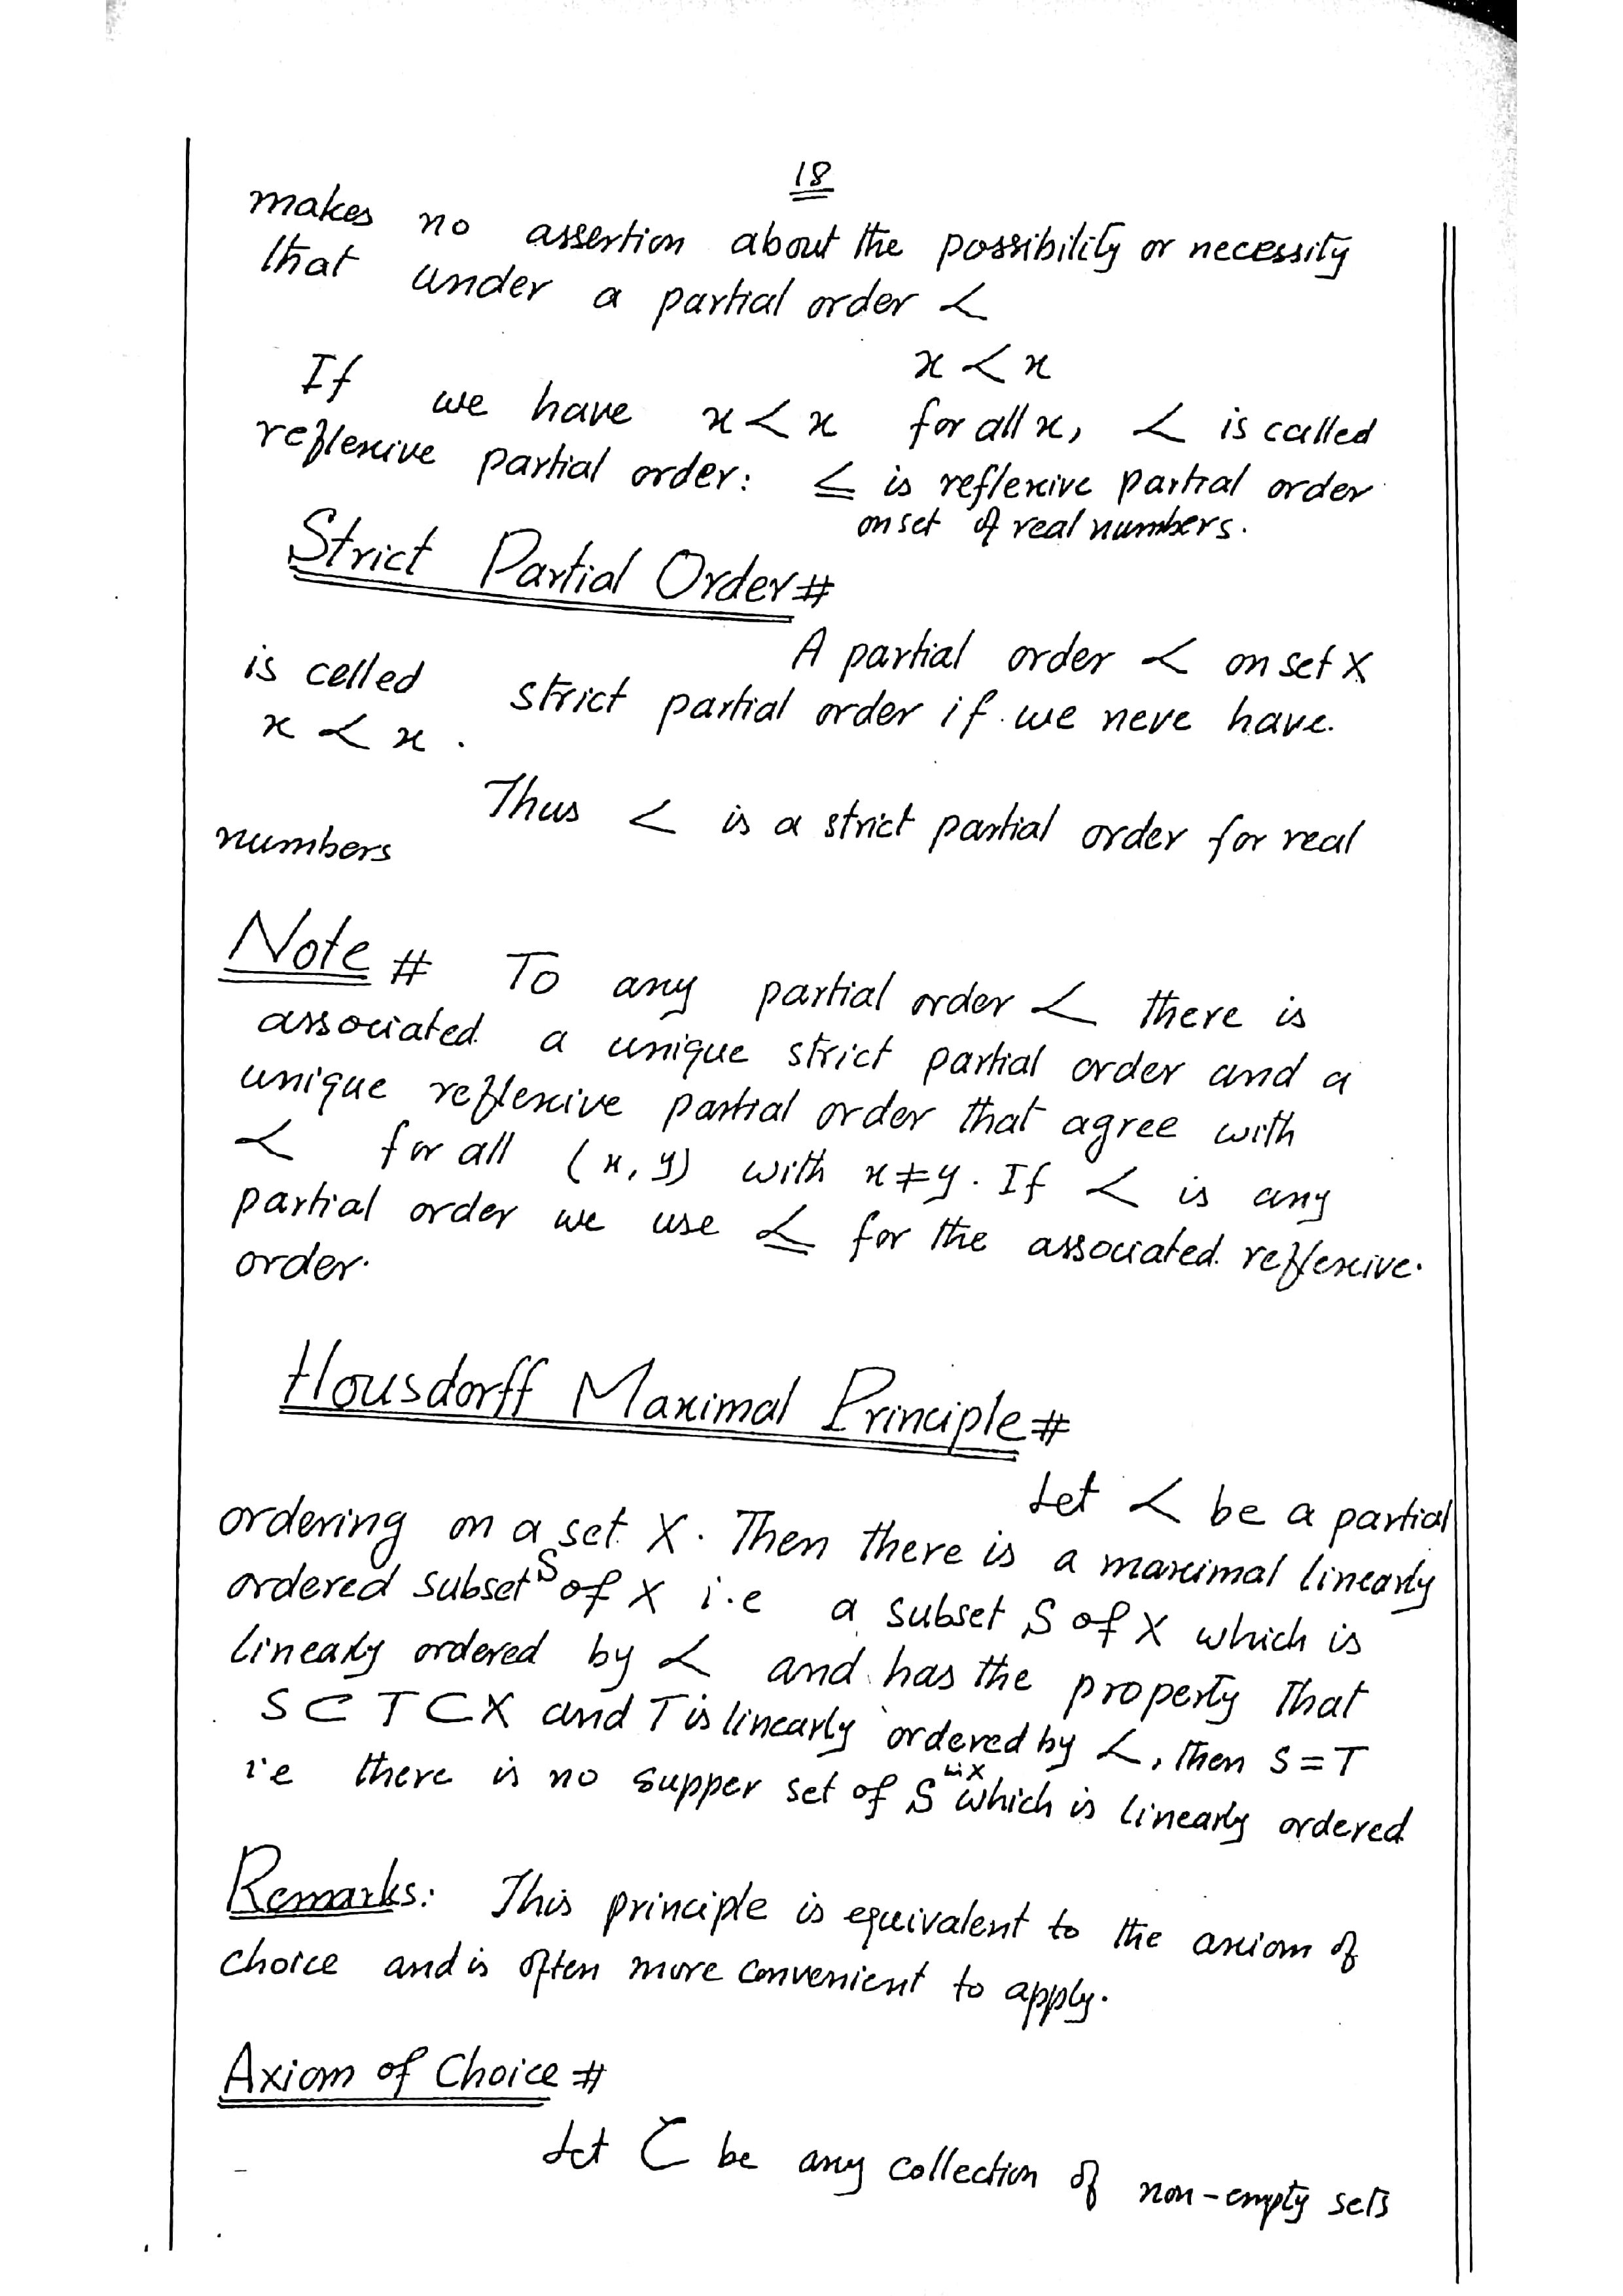 18
makes no assertion about the possibility or necessity
that under a partial order ≺
x ≺ x
If we have x ≺ x for all x, ≺ is called
reflexive partial order: ≤ is reflexive partial order
on set of real numbers.
Strict Partial Order #
A partial order ≺ on set X
is celled strict partial order if we neve have.
x ≺ x.
Thus < is a strict partial order for real
numbers
Note # To any partial order ≺ there is
associated a unique strict partial order and a
unique reflexive partial order that agree with
≺ for all (x, y) with x ≠ y. If ≺ is any
partial order we use ≼ for the associated reflexive.
order.
Housdorff Maximal Principle #
Let ≺ be a partial
ordering on a set X. Then there is a maximal linearly
ordered subset S of X i.e a subset S of X which is
linearly ordered by ≺ and has the property that
S ⊂ T ⊂ X and T is linearly ordered by ≺, then S = T
i.e there is no supper set of S in X which is linearly ordered
Remarks: This principle is equivalent to the axiom of
choice and is often more convenient to apply.
Axiom of Choice #
Let C be any collection of non-empty sets